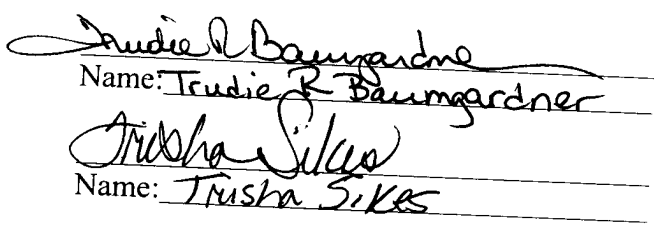 Trudie R Baumgardner
Name: Trudie R Baumgardner
Trisha Sikes
Name: Trisha Sikes